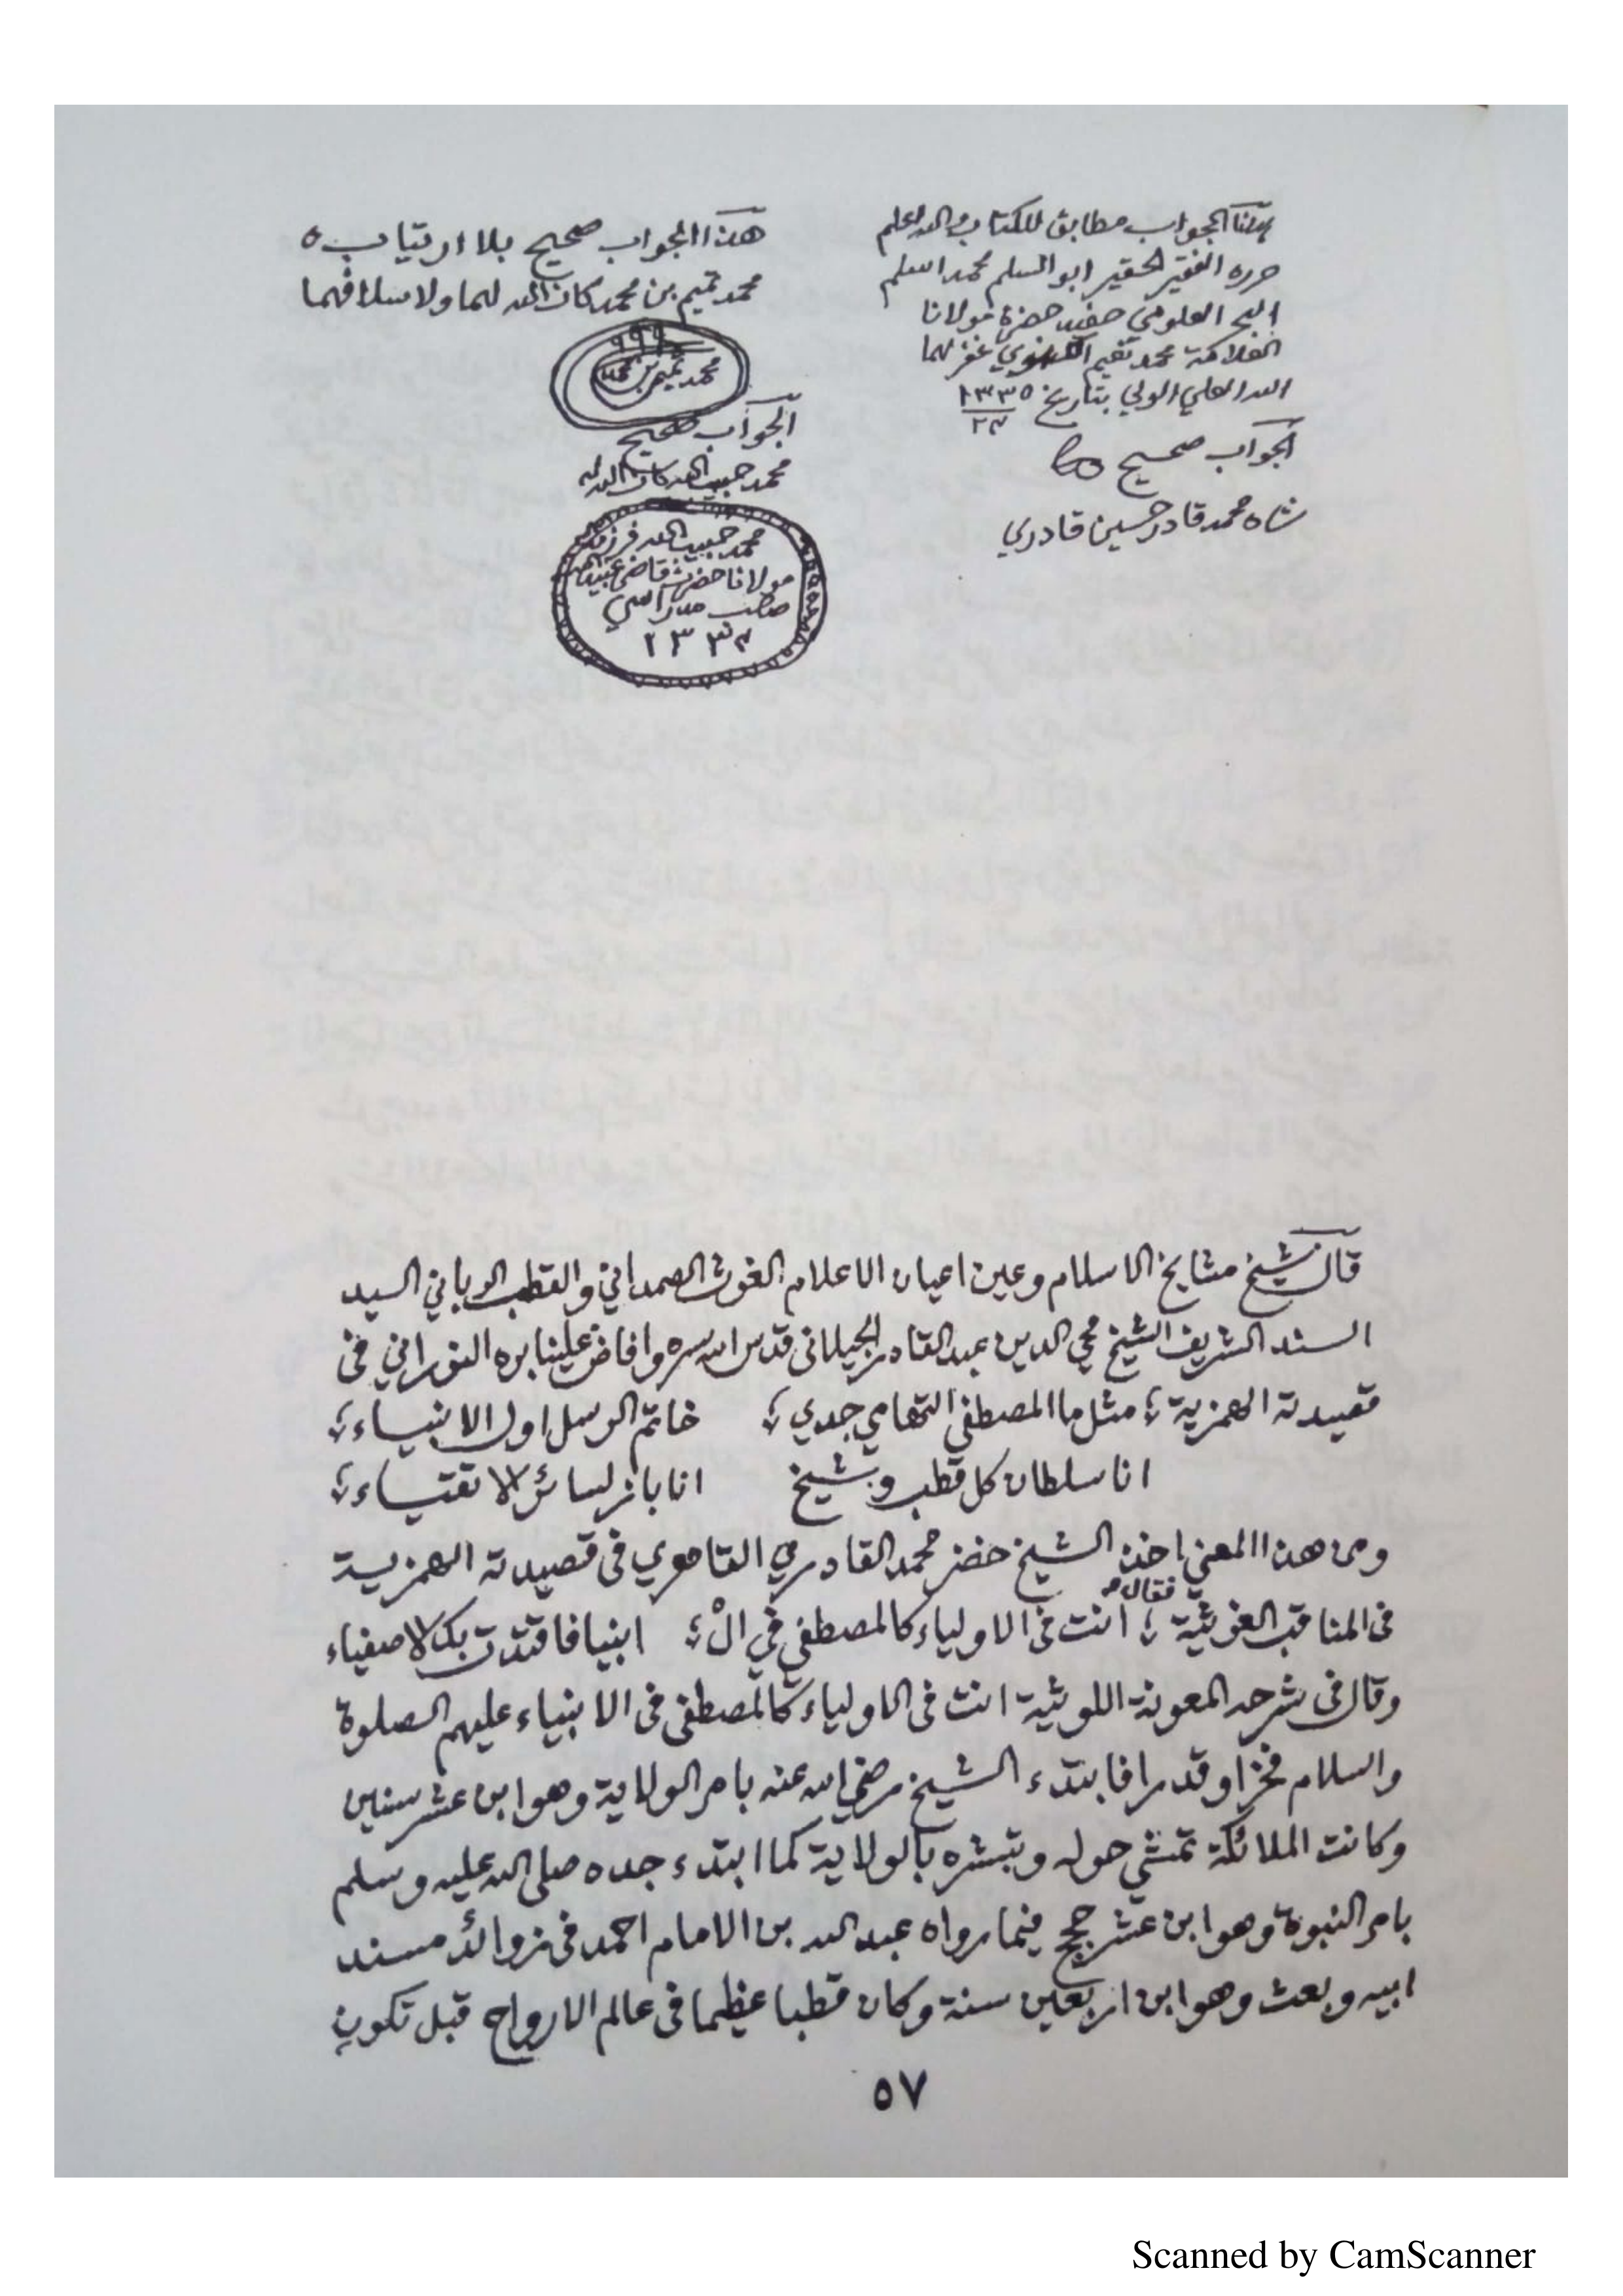 هذا الجواب مطابق للكتاب والله اعلم
حرره الفقير الحقير ابو المسلم محمد اسلم
البحر العلومي حفيد حضرة مولانا
العلامة محمد نعيم اللكنوي غفر لهما
الله العلي الولي بتاريخ ١٣٣٥
٢٣
الجواب صحيح
شاه محمد قادر حسين قادري
هذا الجواب صحيح بلا ارتياب ٥
محمد تميم بن محمد كان الله لهما ولاسلافهما
محمد تميم بن محمد
الجواب صحيح
محمد حبيب الله كان الله له
محمد حبيب الله فرزند
مولانا حضرت قاضي عبيد الله
صاحب مدراسي
١٣٣٤
قال شيخ مشايخ الاسلام وعين اعيان الاعلام الغوث الصمداني والقطب الرباني السيد
السند الشريف الشيخ محي الدين عبد القادر الجيلاني قدس الله سره وافاض علينا بره النوراني في
قصيدته الهمزية ؛ مثل ما المصطفى التهامي جدي ؛ خاتم الرسل اول الانبياء ؛
انا سلطان كل قطب وشيخ انا باز لسائر الاتقياء ؛
ومن هذا المعنى اخذ الشيخ خضر محمد القادري القاهري في قصيدته الهمزية
في المناقب الغوثية فقال ؛ انت في الاولياء كالمصطفى في الْ ؛ انبيا فاقتدت بك الاصفياء
وقال في شرحه المعونة اللوثية انت في الاولياء كالمصطفى في الانبياء عليهم الصلوة
والسلام فخرا وقدرا فابتدء الشيخ رضي الله عنه بامر الولاية وهو ابن عشر سنين
وكانت الملائكة تمشي حوله وتبشره بالولاية كما ابتدء جده صلى الله عليه وسلم
بامر النبوة وهو ابن عشر حجج فيما رواه عبد الله بن الامام احمد في زوائد مسند
ابيه وبعث وهو ابن اربعين سنة وكان قطبا عظيما في عالم الارواح قبل تكوين
٥٧
Scanned by CamScanner